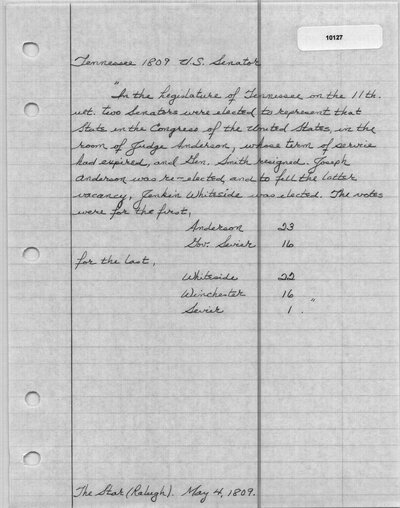 10127
Tennessee 1809 U.S. Senator
"In the Legislature of Tennessee on the 11th.
ult. two Senators were elected to represent that
State in the Congress of the United States, in the
room of Judge Anderson, whose term of service
had expired, and Gen. Smith resigned. Joseph
Anderson was re-elected, and to fill the latter
vacancy, Jenkin Whiteside was elected. The votes
were for the first,
Anderson 23
Gov. Sevier 16
for the last,
Whiteside 22
Winchester 16
Sevier 1 . "
The Star (Raleigh). May 4, 1809.